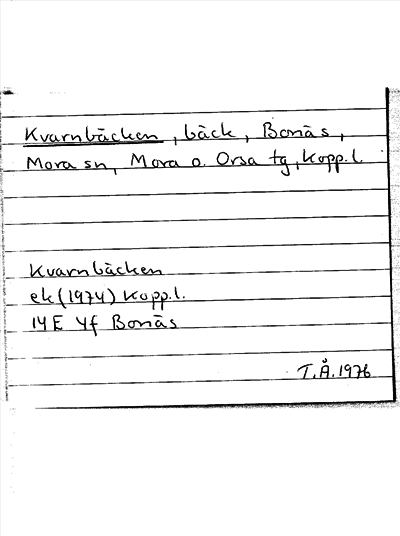 Kvarnbäcken, bäck, Bonäs,
Mora sn, Mora o. Orsa tg, Kopp.l.
Kvarnbäcken
ek (1974) Kopp.l.
14E 4f Bonäs
T.Å. 1976